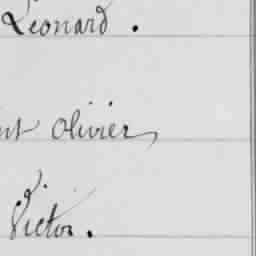 Léonard.
nt Olivier,
Victor.